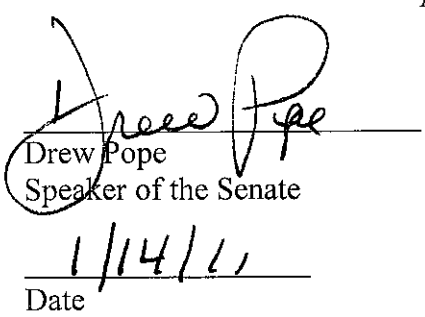 Drew Pope
Drew Pope
Speaker of the Senate
1/14/11
Date